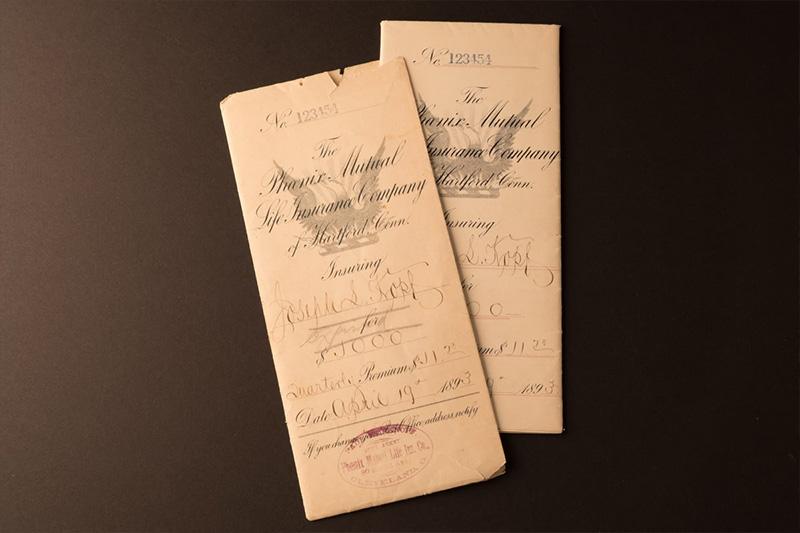 No. 123454
The
Phoenix Mutual
Life Insurance Company
of Hartford Conn.
Insuring
Joseph S. Kopf
for
$1000
Quarterly Premium $11
Date April 19th 1893
If you change your Post Office address, notify
Phoenix Mutual Life Ins. Co.
CLEVELAND, O.
No. 123454
The
Phoenix Mutual
Insurance Company
Hartford Conn.
Insuring
S. Kopf
for
00
$11
1893